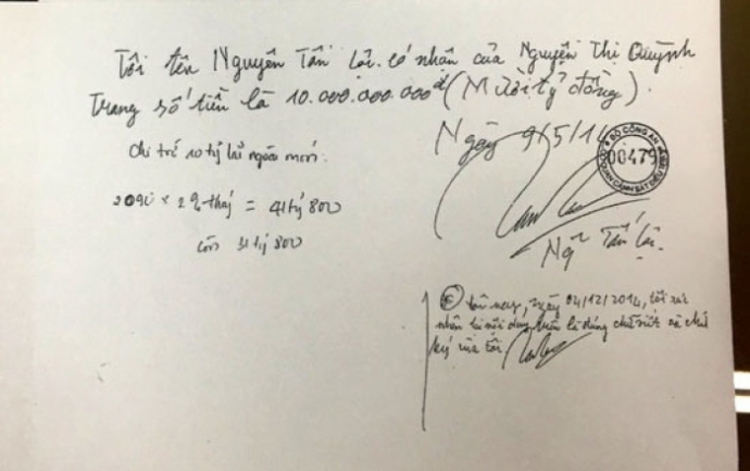 Tôi tên Nguyễn Tấn Lôi. có nhận của Nguyễn Thị Quỳnh
Trang số tiền là 10.000.000.000đ (Mười tỷ đồng).
Ngày 9/5/14
Chi trả 10 tỷ lãi ngoài
2090 x 2% tháng = 41 tỷ 800
còn 31 tỷ 800
BỘ CÔNG AN
00479
CƠ QUAN CẢNH SÁT ĐIỀU TRA
Ng~ Tấn Lôi.
Hôm nay, ngày 04/12/2014, tôi xác
nhận là nội dung trên là đúng chữ viết và chữ
ký của tôi